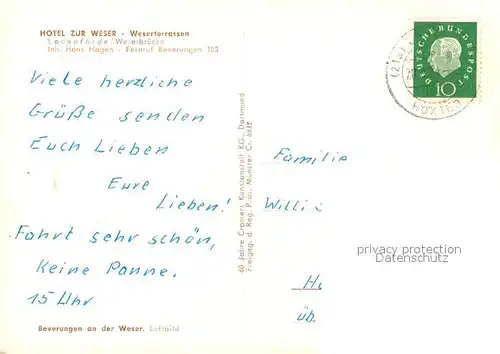 HOTEL ZUR WESER - Weserterrassen
Lauenförde/Weserbrücke
Inh. Hans Hagen - Fernruf Beverungen 103
Viele herzliche
Grüße senden
Euch Lieben
Eure
Lieben!
Fahrt sehr schön,
Keine Panne.
15 Uhr
Beverungen an der Weser. Luftbild
60 Jahre Cramers Kunstanstalt KG., Dortmund
Freigeg. d. Reg. Präs. Münster Cr. 6838
DEUTSCHE BUNDESPOST
10
(21a)
HÖXTER
Familie
Willi
privacy protection
Datenschutz
üb.